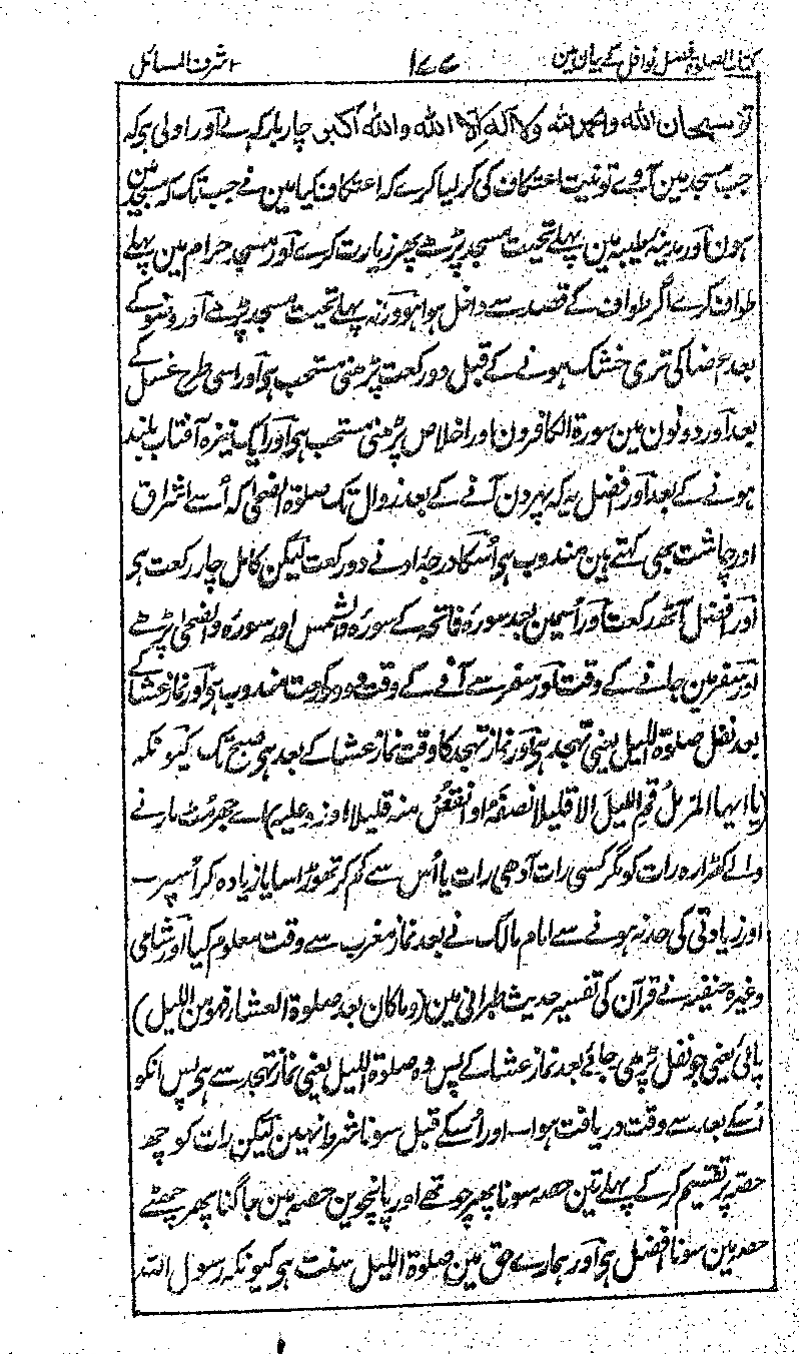 کتاب الصلوۃ فصل نوافل کے بیان مین ۱۷۷ اشرف المسائل
تو سبحان اللہ والحمد للہ ولا الہ الا اللہ واللہ اکبر چار بار کہے اور اولی ہو کہ
جب مسجد مین آوے تو نیت اعتکاف کی کر لیا کرے کہ اعتکاف کیا مین نے جب تک کہ مسجد مین
ہون اور مدینہ طیبہ مین پہلے تحیت مسجد پڑھے پھر زیارت کرے اور مسجد حرام مین پہلے
طواف کرے اگر طواف کے قصد سے داخل ہوا ہو ورنہ پہلے تحیت مسجد پڑھے اور وضو کے
بعد عضا کی تری خشک ہونے کے قبل دو رکعت پڑھنی مستحب ہو اور اسی طرح غسل کے
بعد اور دونون مین سورۃ الکافرون اور اخلاص پڑھنی مستحب ہو اور ایک نیزہ آفتاب بلند
ہونے کے بعد اور افضل یہ کہ پہر دن آنے کے بعد زوال تک صلوۃ الضحی کہ اُسے اشراق
اور چاشت بھی کہتے ہین مندوب ہو اُسکا درجۂ ادنے دو رکعت لیکن کامل چار رکعت ہو
اور افضل آٹھ رکعت اور اُسمین بعد سورۂ فاتحہ کے سورۂ والشمس اور سورۂ والضحی پڑھے
اور سفر مین جانے کے وقت اور سفر سے آنے کے وقت دو دو رکعت مندوب ہو اور نماز عشا کے
بعد نفل صلوۃ اللیل یعنی تہجد ہو اور نماز تہجد کا وقت نماز عشا کے بعد ہو صبح تک کیونکہ
(یا ایہا المزمل قم اللیل الا قلیلا نصفہ او انقص منہ قلیلا او زد علیہ) اے جھرمٹ مارنے
والے کھڑا رہ رات کو مگر کسی رات آدھی رات یا اُس سے کم کر تھوڑا سا یا زیادہ کر اُسپر۔
اور زیادتی کی حد نہ ہونے سے امام مالک نے بعد نماز مغرب سے وقت معلوم کیا اور شامی
وغیرہ حنفیہ نے قرآن کی تفسیر حدیث طبرانی مین (وما کان بعد صلوۃ العشاء فہو من اللیل)
پائی یعنی جو نفل پڑھی جائے بعد نماز عشا کے پس وہ صلوۃ اللیل یعنی نماز تہجد سے ہو پس انکو
اُسکے بعد سے وقت دریافت ہوا۔ اور اُسکے قبل سونا شرط نہین لیکن رات کو چھ
حصہ پر تقسیم کر کے پہلے تین حصہ سونا پھر چوتھے اور پانچوین حصہ مین جاگنا پھر چھٹے
حصہ مین سونا افضل ہو اور ہمارے حق مین صلوۃ اللیل سنت ہو کیونکہ رسول اللہ